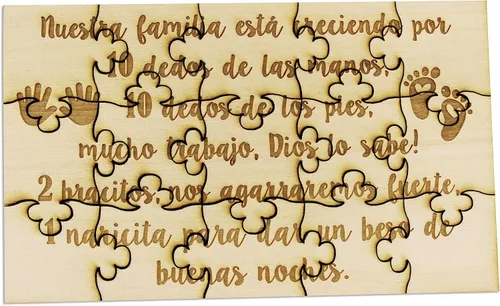 Nuestra familia está creciendo por
10 dedos de las manos,
10 dedos de los pies,
mucho trabajo, Dios lo sabe!
2 bracitos, nos agarraremos fuerte,
1 naricita para dar un beso de
buenas noches.